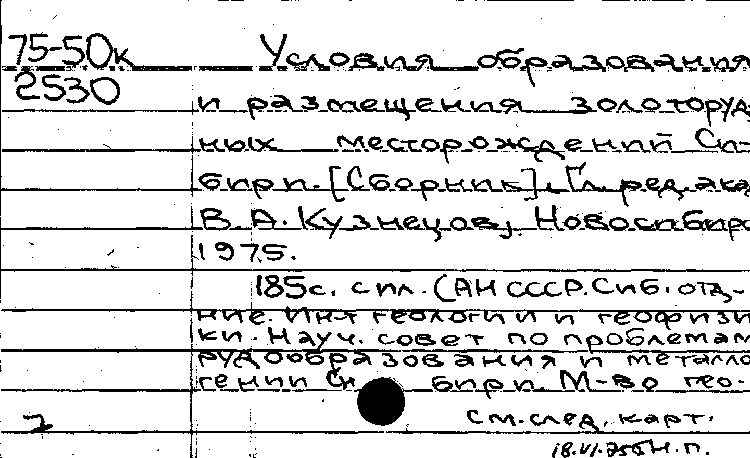 75-50к Условия образования
2530
и размещения золоторуд
ных месторождений Си-
бири. [Сборник]. Гл. ред. ака
В. А. Кузнецов, Новосибирс
1975.
185с. с ил. (АН СССР. Сиб. отд-
ние. Ин-т геологии и геофизи
ки. Науч. совет по проблемам
рудообразования и металло
гении Си бири. М-во гео-
см. след. карт.